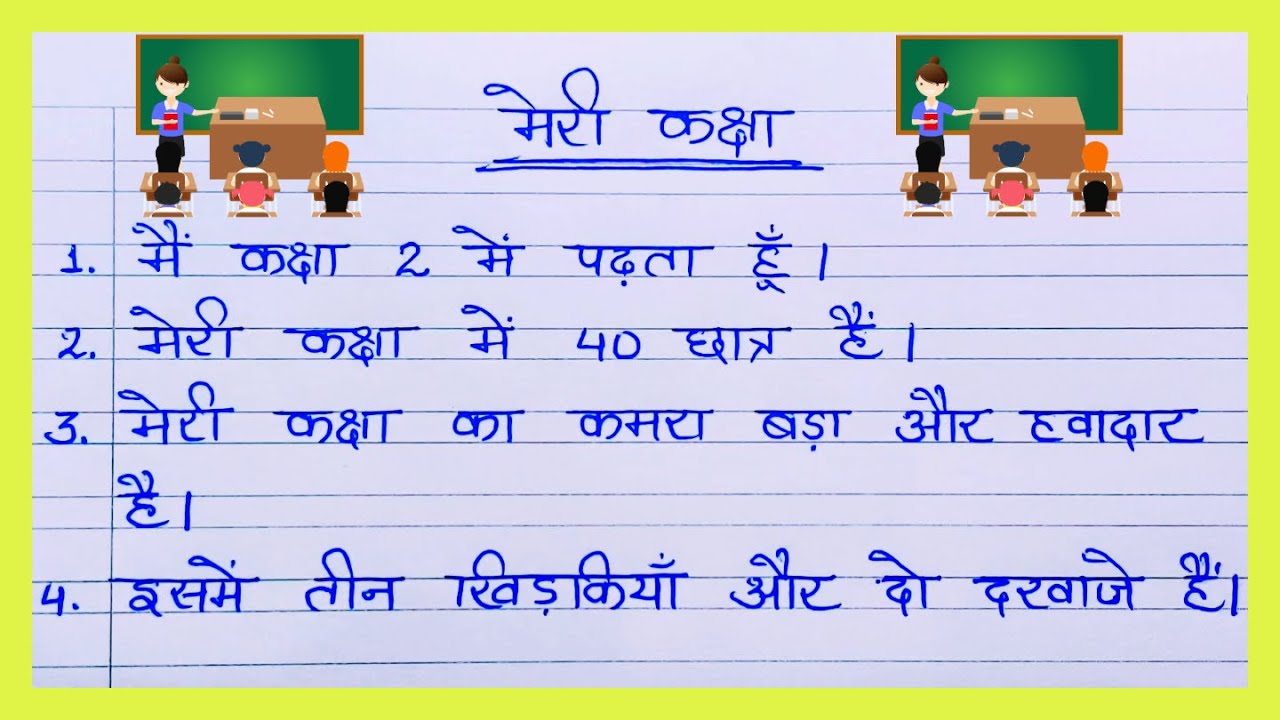 मेरी कक्षा
1. मैं कक्षा 2 में पढ़ता हूँ।
2. मेरी कक्षा में 40 छात्र हैं।
3. मेरी कक्षा का कमरा बड़ा और हवादार
है।
4. इसमें तीन खिड़कियाँ और दो दरवाजे हैं।